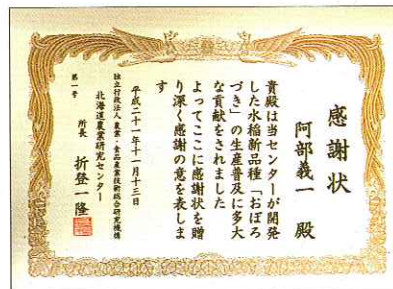 感謝状
阿部義一 殿
貴殿は当センターが開発
した水稲新品種「おぼろ
づき」の生産普及に多大
な貢献をされました
よってここに感謝状を贈
り深く感謝の意を表しま
す
平成二十一年十一月十三日
独立行政法人 農業・食品産業技術総合研究機構
北海道農業研究センター
所長 折登一隆
第一号